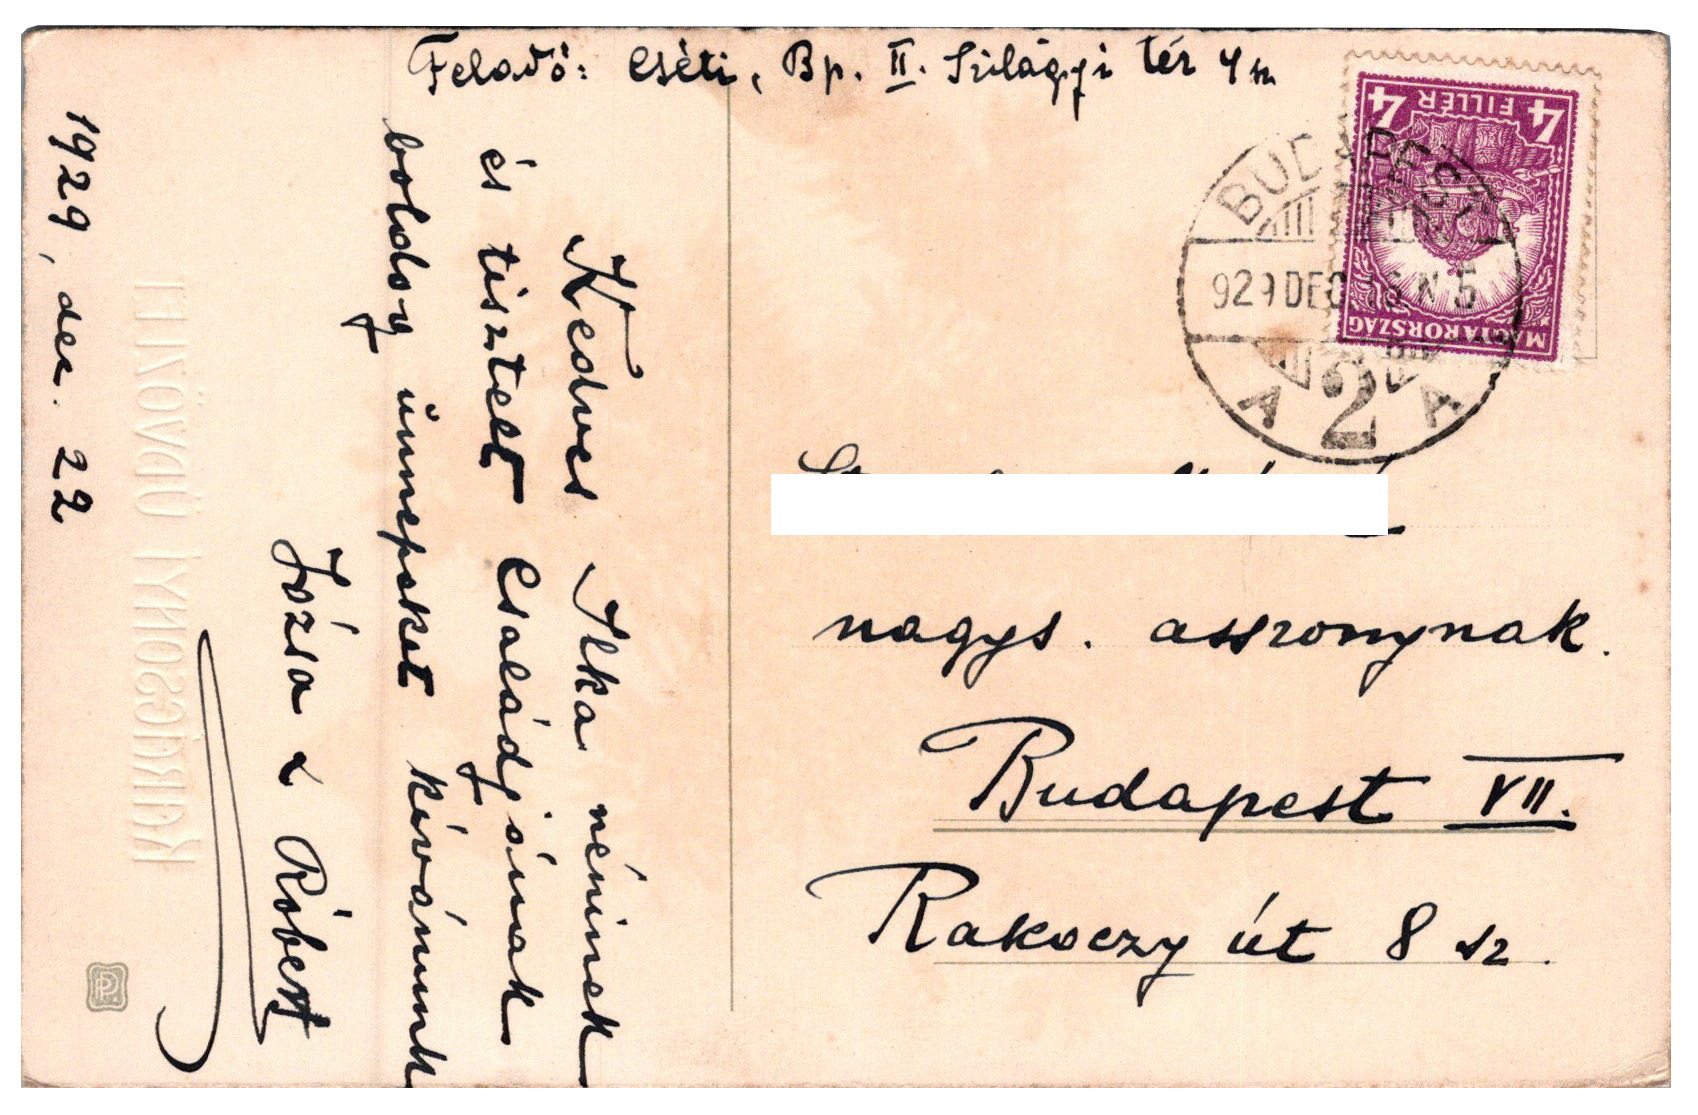 Feladó: Cséti, Bp. II. Szilágyi tér 4 sz
4 FILLÉR 4
MAGYARORSZÁG
BUDAPEST
929 DEC N 5
A 2 A
nagys. asszonynak.
Budapest VII.
Rakoczy út 8 sz.
Kedves Ilka néninek
és tisztelt családjának
boldog ünnepeket kívánunk
Józsa & Róbert
1929, dec. 22
KARÁCSONYI ÜDVÖZLET